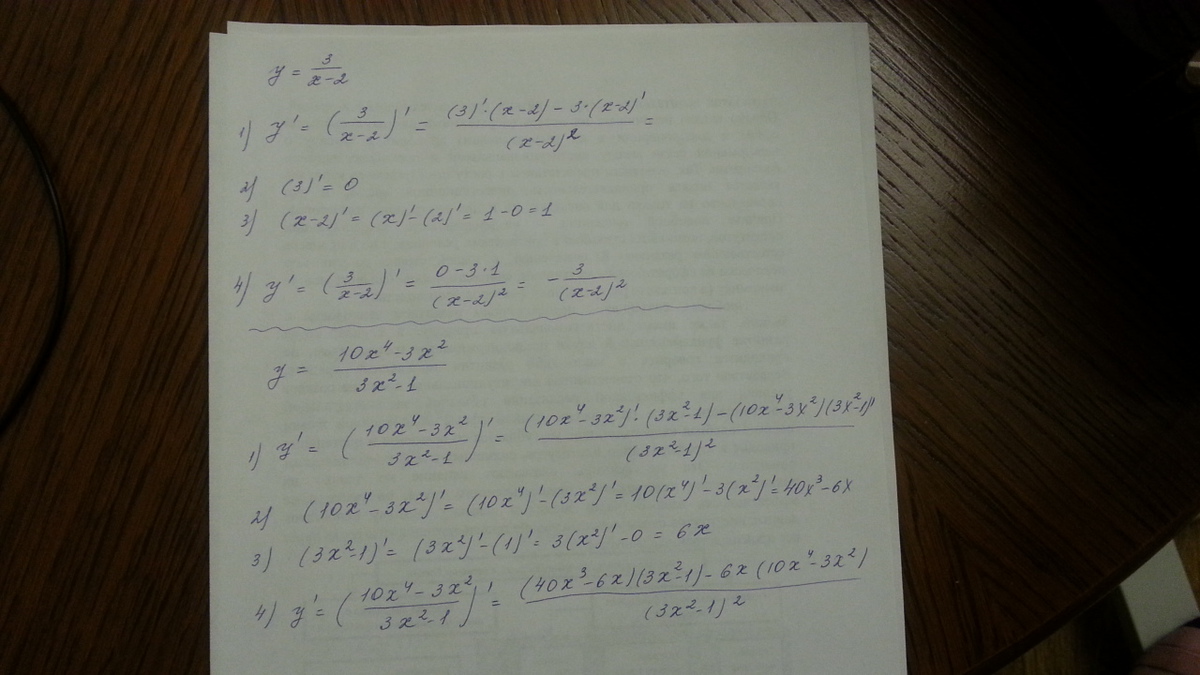 y = 3/(x-2)
1) y' = (3/(x-2))' = ((3)'·(x-2) - 3·(x-2)')/(x-2)² =
2) (3)' = 0
3) (x-2)' = (x)' - (2)' = 1 - 0 = 1
4) y' = (3/(x-2))' = (0 - 3·1)/(x-2)² = - 3/(x-2)²
y = (10x⁴ - 3x²)/(3x² - 1)
1) y' = ((10x⁴ - 3x²)/(3x² - 1))' = ((10x⁴ - 3x²)'·(3x² - 1) - (10x⁴ - 3x²)(3x² - 1)')/(3x² - 1)²
2) (10x⁴ - 3x²)' = (10x⁴)' - (3x²)' = 10(x⁴)' - 3(x²)' = 40x³ - 6x
3) (3x² - 1)' = (3x²)' - (1)' = 3(x²)' - 0 = 6x
4) y' = ((10x⁴ - 3x²)/(3x² - 1))' = ((40x³ - 6x)(3x² - 1) - 6x(10x⁴ - 3x²))/(3x² - 1)²